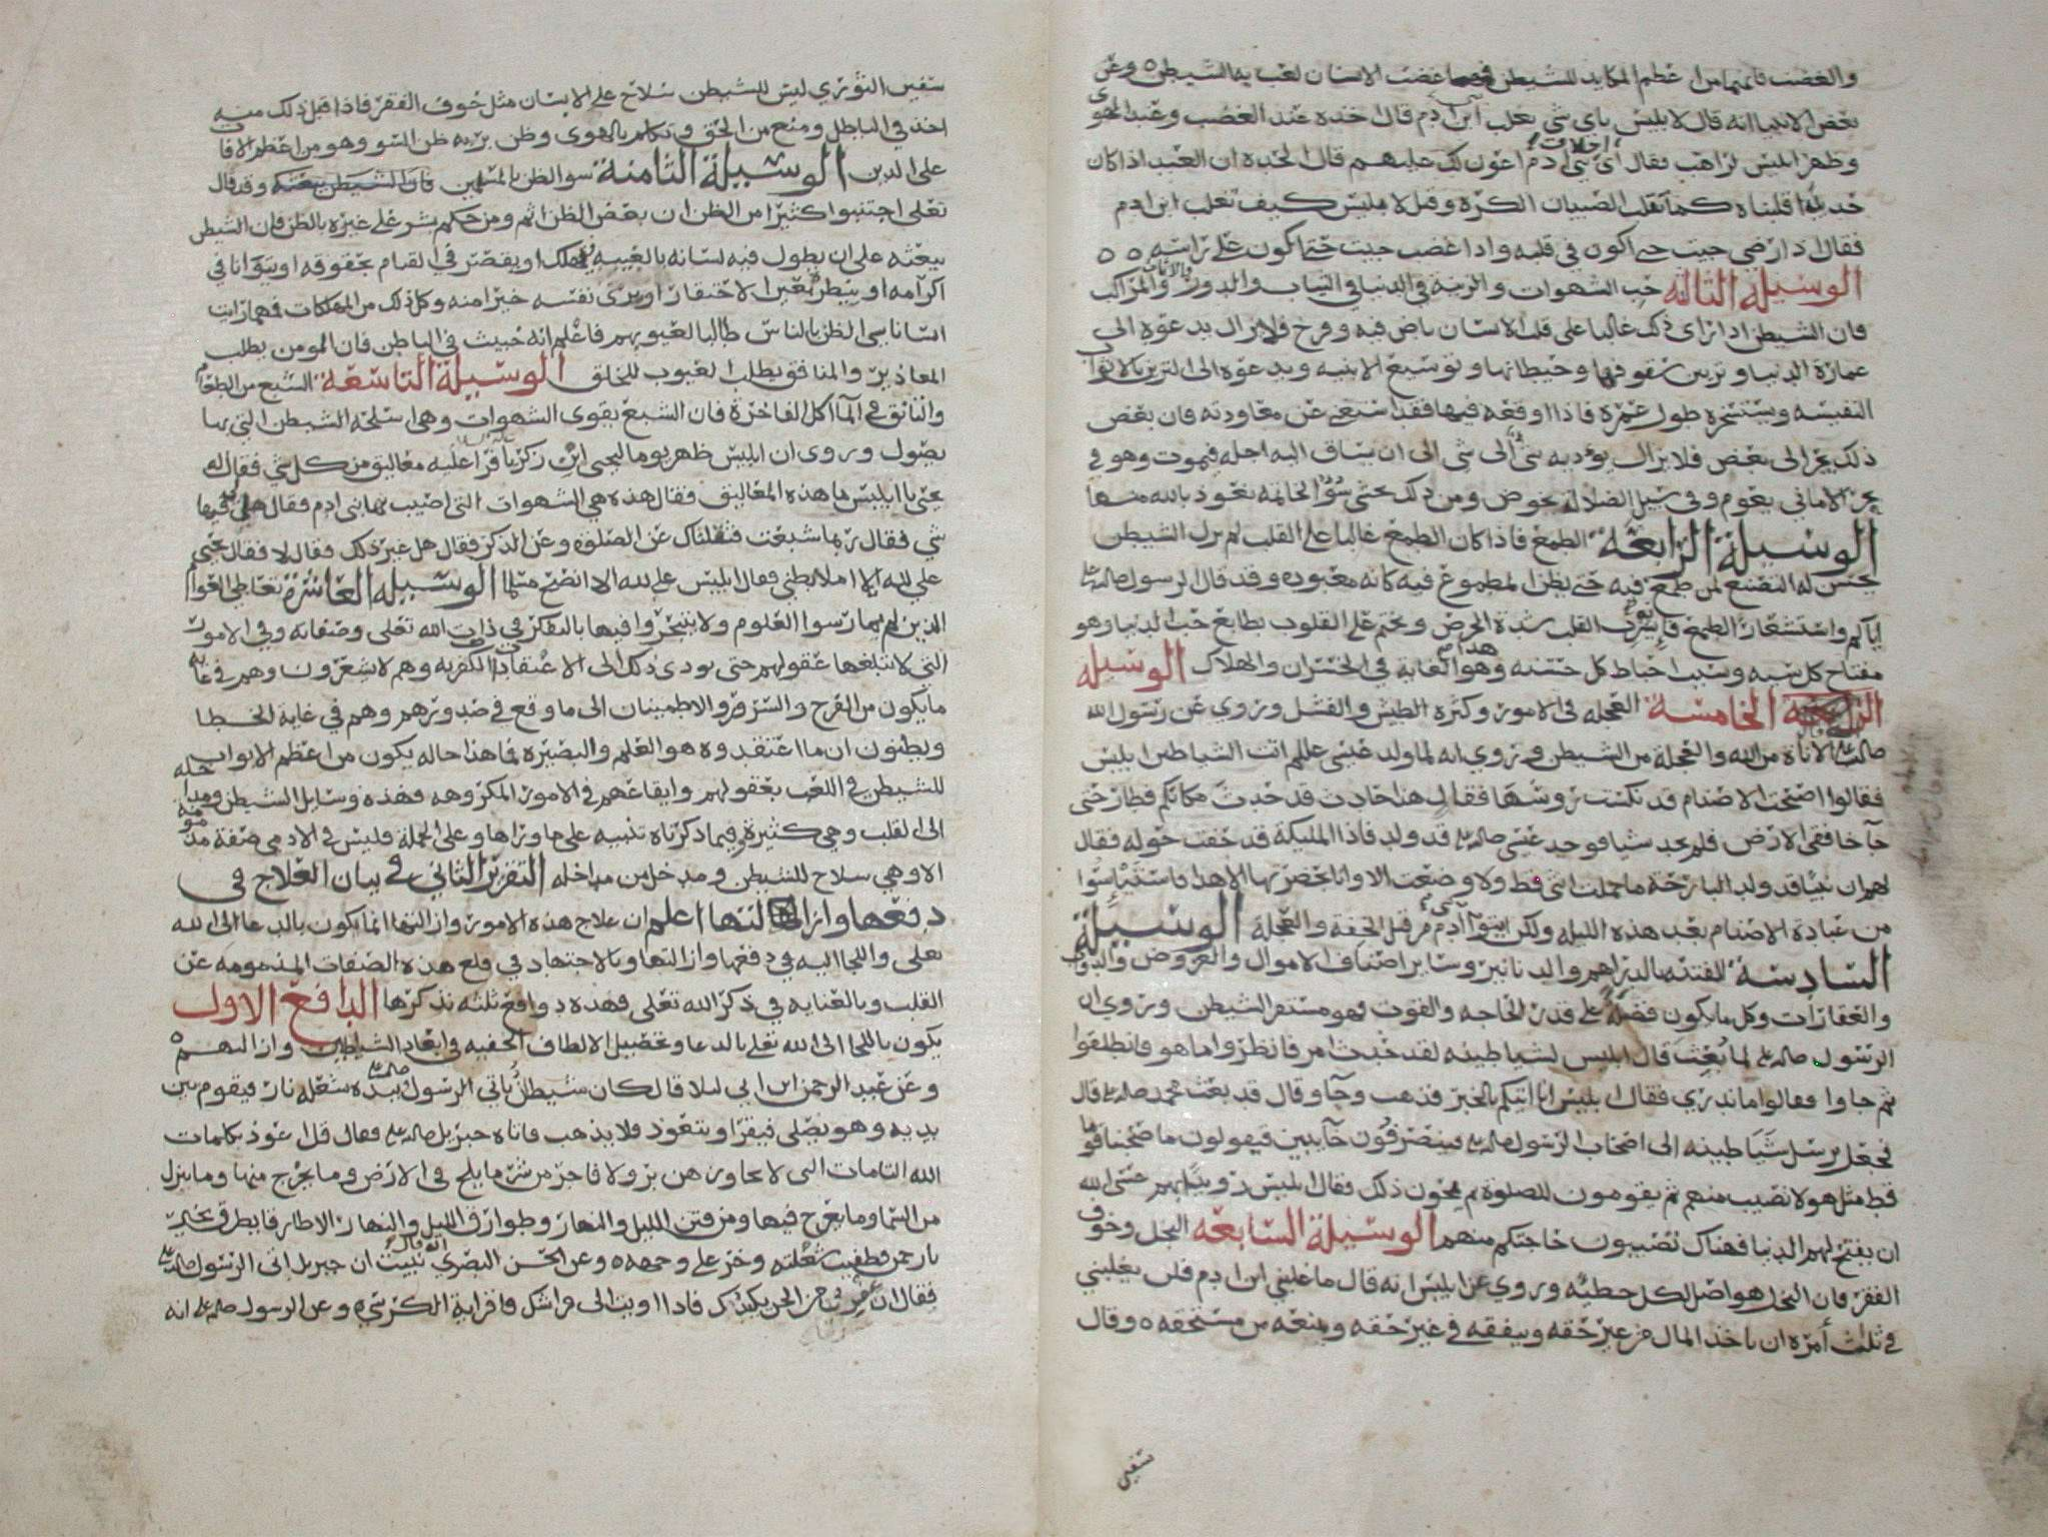 والغضب فانهما من اعظم المكايد للشيطن فمهما غضب الانسان لعب به الشيطن ٥ وعن
بعض الانبيا انه قال لابليس باي شي تغلب ابن ادم قال اخذه عند الغضب وعند الهوى
وظهر ابليس لراهب فقال اي اخلاق بني ادم اعون لك عليهم قال الحده ان العبد اذا كان
حديدا قلبناه كما تقلب الصبيان الكرة وقيل لابليس كيف تغلب ابن ادم
فقال اذا رضي جيت حتى اكون في قلبه واذا غضب جيت حتى اكون على راسه ٥ ٥
الوسيلة الثالثه حب الشهوات والزينه في الدنيا في الثياب والاثاث والدور والمراكب
فان الشيطن اذا راى ذلك غالبا على قلب الانسان باض فيه وفرخ فلا يزال يدعوه الى
عمارة الدنيا وتزيين سقوفها وحيطانها وتوسيع الابنيه ويدعوه الى التزين بالاثواب
النفيسه ويستسخره طول عمره فاذا اوقعه فيها فقد استغنى عن معاودته فان بعض
ذلك يجر الى بعض فلا يزال يؤديه شي الى شي الى ان يساق اليه اجله فيموت وهو في
بحر الاماني يعوم وفي سبيل الضلالة يخوض ومن ذلك يخشى سوء الخاتمه نعوذ بالله منها
الوسيلة الرابعة الطمع فاذا كان الطمع غالبا على القلب لم يزل الشيطن
يحسن له التصنع لمن طمع فيه حتى يظن المطموع فيه كانه معبوده وقد قال الرسول صلى الله عليه
اياكم واستشعار الطمع فانه يشرب القلب شدة الحرص ويختم على القلوب بطابع حب الدنيا وهو
مفتاح كل سيه وسبب احباط كل حسنه وهذا هو الغاية في الخسران والهلاك الوسيله
الخامسة العجله في الامور وكثرة الطيش والفشل وروي عن رسول الله
صلى الله عليه انه قال الاناة من الله والعجلة من الشيطن وروي انه لما ولد عيسى عليلم اتت الشياطين ابليس
فقالوا اصبحت الاصنام قد نكست روسها فقال هذا حادث قد حدث مكانكم فطار حتى
جا خافقى الارض فلم يجد شيا فوجد عيسى صلى الله عليه قد ولد فاذا المليكة قد حفت حوله فقال
لهم ان نبيا قد ولد البارحة ما حملت انثى قط ولا وضعت الا وانا بحضرتها الا هذا فاستيئسوا
من عبادة الاصنام بعد هذه الليله ولكن ايتوا بني آدم من قبل الخفة والعجلة الوسيلة
السادسة الفتنه بالدراهم والدنانير وسائر اصناف الاموال والعروض والدواب
والعقارات وكل ما يكون فضلة على قدر الحاجه والقوت فهو مستقر الشيطن وروي ان
الرسول صلى الله عليه لما بعث قال ابليس لشياطينه لقد حدث امر فانظروا ما هو فانطلقوا
ثم جاوا فقالوا ما ندري فقال ابليس انا اتيكم بالخبر فذهب وجا وقال قد بعث محمد صلى الله عليه قال
فجعل يرسل شياطينه الى اصحاب الرسول صلى الله عليه فينصرفون خآيبين فيقولون ما صحبنا قوما
قط مثل هولا نصيب منهم ثم يقومون للصلوة ثم يمحون ذلك فقال ابليس رويدا بهم عسى الله
ان يفتح لهم الدنيا فهناك تصيبون حاجتكم منهم الوسيلة السابعه البخل وخوف
الفقر فان البخل هو اصل لكل خطيه وروي عن ابليس انه قال ما غلبني ابن ادم فلن يغلبني
في ثلث أمره ان ياخذ المال من غير حقه وينفقه في غير حقه ويمنعه من مستحقه ٥ وقال
سفين
سفين الثوري ليس للشيطن سلاح على الانسان مثل خوف الفقر فاذا قبل ذلك منه
اخذ في الباطل ومنع من الحق وتكلم بالهوى وظن بربه ظن السو وهو من اعظم الافات
على الدين الوسيلة الثامنة سو الظن بالمسلمين وقد قال
تعلى اجتنبوا كثيرا من الظن ان بعض الظن اثم ومن حكم بشر على غيره بالظن فان الشيطن
يبعثه على ان يطول فيه لسانه بالغيبه فيهلك او يقصر في القيام بحقوقه او يتوانا في
اكرامه او ينظر بعين الاحتقار او يرى نفسه خيرا منه وكل ذلك من المهلكات فمهما رايت
انسانا سي الظن بالناس طالبا لعيوبهم فاعلم انه خبيث في الباطن فان المومن يطلب
المعاذير والمنافق يطلب العيوب للخلق الوسيلة التاسعة الشبع من الطعام
والتانق في المآكل الفاخرة فان الشبع يقوى الشهوات وهي اسلحة الشيطن التي بها
يصول وروي ان ابليس ظهر يوما ليحيى ابن زكريا فراى عليه معاليق من كل شي فقال له
يحيى يا ابليس ما هذه المعاليق فقال هذه هي الشهوات التي اصيب بها بني ادم فقال هل لي فيها
شي فقال ربما شبعت فثقلناك عن الصلوة وعن الذكر فقال هل غير ذلك فقال لا فقال يحيى
علي لله الا املا بطني فقال ابليس علي لله الا انصح مسلما الوسيله العاشرة تعاطي العوام
الذين لم يمارسوا العلوم ولا يتبحروا فيها بالتفكر في ذات الله تعلى وصفاته وفي الامور
التي لا تبلغها عقولهم حتى يودي ذلك الى الاعتقادات الكفريه وهم لا يشعرون وهم في غاية
ما يكون من الفرح والسرور والاطمينان الى ما وقع في صدورهم وهم في غاية الخطا
ويظنون ان ما اعتقدوه هو العلم والبصيرة فما هذا حاله يكون من اعظم الابواب
للشيطن في اللعب بعقولهم وايقاعهم في الامور المكروهه فهذه وسايل الشيطن ومداخله
الى القلب وهي كثيرة وفيما ذكرناه تنبيه على ما وراها وعلى الجملة فليس في الادمي صفة مذمومة
الا وهي سلاح للشيطن ومدخل من مداخله التقرير الثاني في بيان العلاج في
دفعها وازالتها اعلم ان علاج هذه الامور وازالتها انما يكون بالدعا الى الله
تعلى واللجا اليه في دفعها وازالتها وبالاجتهاد في قلع هذه الصفات المذمومه عن
القلب وبالعنايه في ذكر الله تعلى فهذه دوافع ثلثه نذكرها الدافع الاول
يكون باللجا الى الله تعلى بالدعا وتحصيل الالطاف الخفيه في ابعاد الشياطين وازالتهم ٥
وعن عبد الرحمن ابن ابي ليلا قال كان شيطان ياتي الرسول صلى الله عليه بيده شعلة نار فيقوم بين
يديه وهو يصلى فيقرا ويتعوذ فلا يذهب فاتاه جبريل صلى الله عليه فقال قل اعوذ بكلمات
الله التامات التي لا يجاوزهن بر ولا فاجر من شر ما يلج في الارض وما يخرج منها وما ينزل
من السما وما يعرج فيها ومن فتن الليل والنهار وطوارق الليل والنهار الا طارقا يطرق بخير
يا رحمن فطفيت شعلته وخر على وجهه ٥ وعن الحسن البصري انه قال نبيت ان جبريل اتى الرسول صلى الله عليه
فقال ان عفريتا من الجن يكيدك فاذا اويت الى فراشك فاقرا اية الكرسي وعن الرسول صلى الله عليه انه